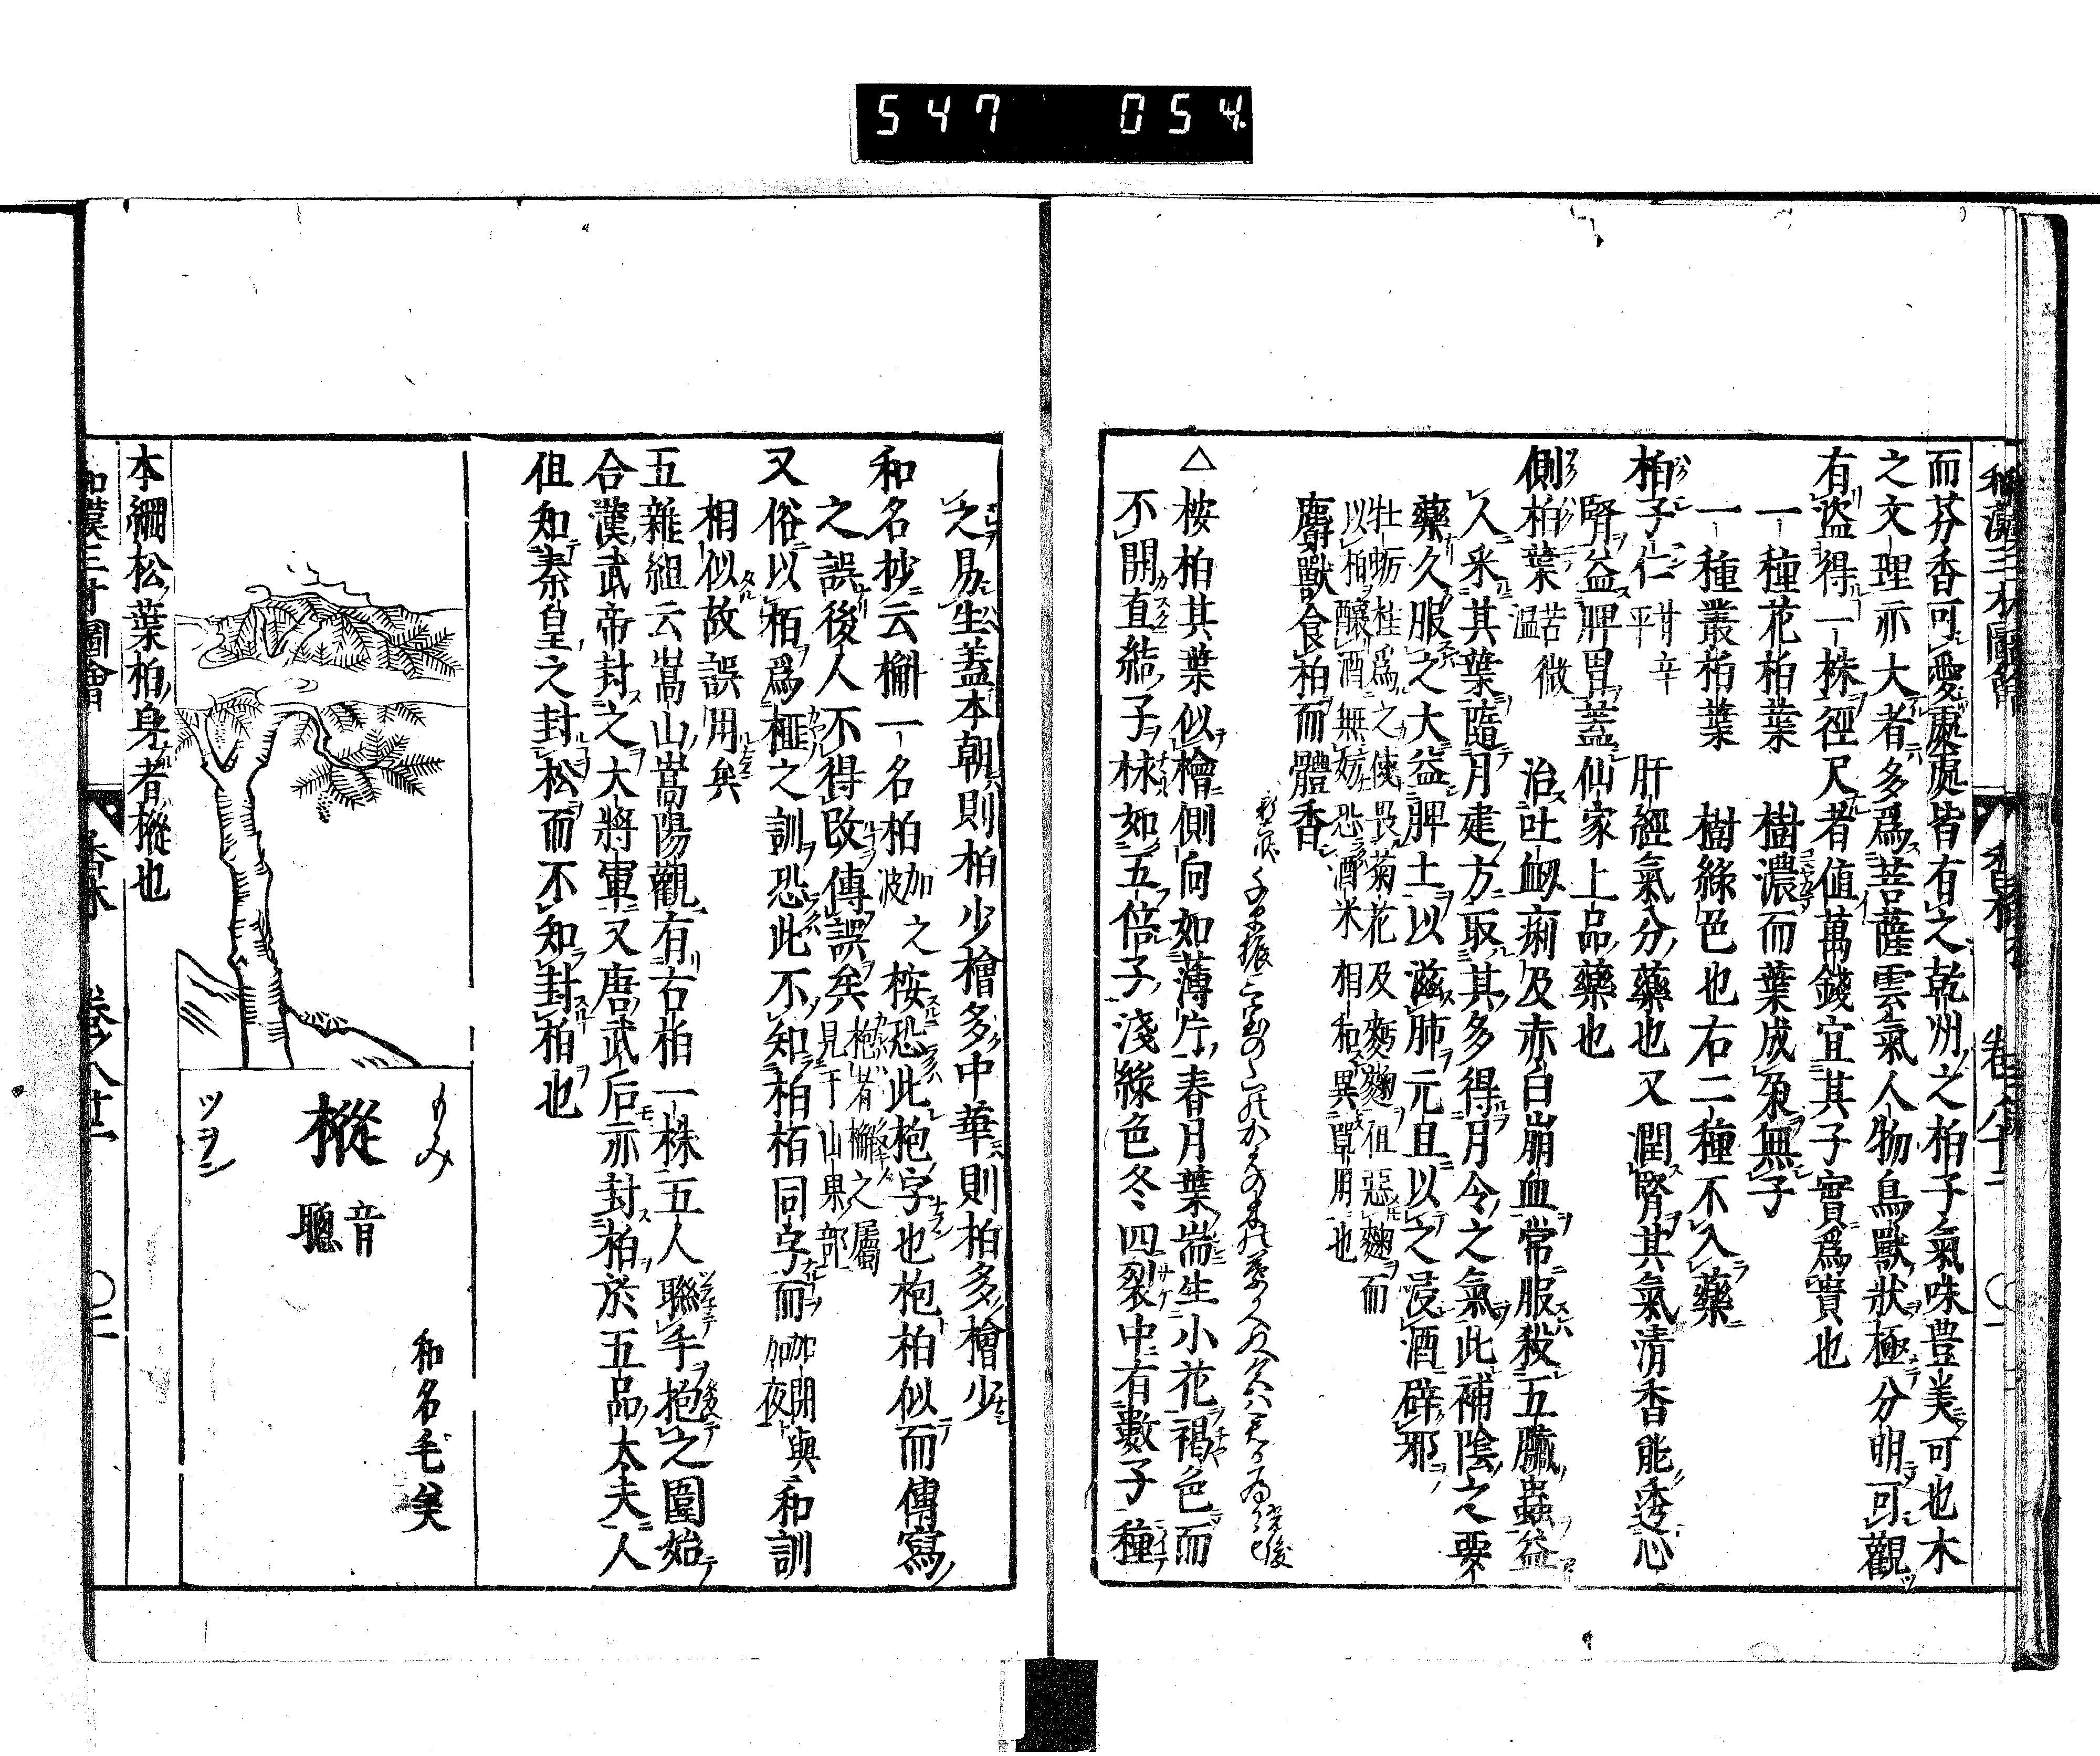 547 054
而芬香可愛處處皆有之乾州之柏子氣味豊美可也木
之文理亦大者多爲菩薩雲氣人物鳥獸狀極分明可觀
有盗得一株徑尺者値萬錢宜其子實爲貴也
一種花柏葉 樹濃而葉成朶無子
一種叢柏葉 樹綠色也右二種不入藥
柏子仁 甘辛平 肝經氣分藥也又潤腎其氣清香能透心
腎益脾胃蓋仙家上品藥也
側柏葉 苦微温 治吐衂痢及赤白崩血常服殺五臟蟲益
人采其葉隨月建方取其多得月令之氣此補陰之要
藥久服之大益脾土以滋肺元旦以之浸酒辟邪
牡蛎桂爲之使畏菊花及麪麴伹惡麴而
以柏釀酒無妨恐酒米相和異單用也
麝獸食柏而體香
△桉柏其葉似檜側向如薄片春月葉耑生小花褐色而
不開直結子梂如五倍子淺綠色冬四裂中有數子種
之易生蓋本朝則柏少檜多中華則柏多檜少
和名抄云槲一名柏加之波桉恐此枹字也枹柏似而傳寫
之誤後人不得改傳誤矣枹者槲之屬見于山果部
又俗以栢爲榧之訓恐此不知柏栢同字而加閉與和訓加夜
相似故誤用矣
五雜組云嵩山嵩陽觀有古柏一株五人聯手抱之圍始
合漢武帝封之大將軍又唐武后亦封柏於五品大夫人
伹知秦皇之封松而不知封柏也
もみ
樅
音聰
ツヲン
和名毛美
本綱松葉柏身者樅也
和漢三才圖會 香木 卷八十二 〇二